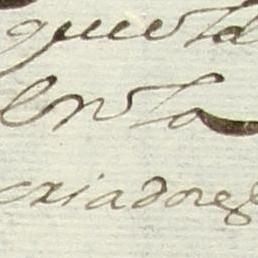 que la
en la
criadores